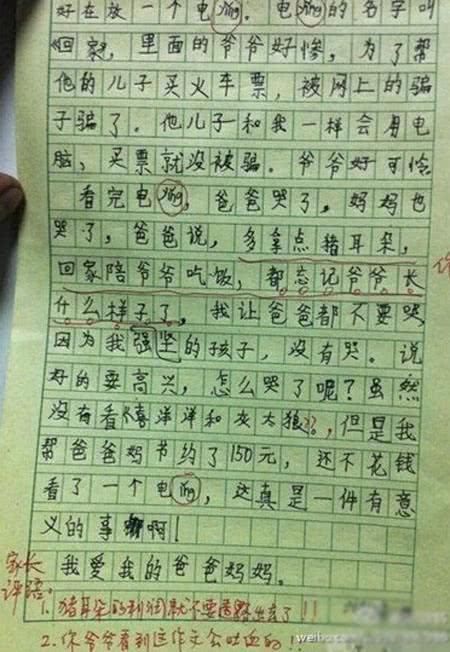 好在放一个电ying。电ying的名字叫
《回家》,里面的爷爷好惨,为了帮
他的儿子买火车票,被网上的骗
子骗了。他儿子和我一样会用电
脑,买票就没被骗。爷爷好可怜
看完电ying,爸爸哭了,妈妈也
哭了,爸爸说,多拿点猪耳朵,
回家陪爷爷吃饭,都忘记爷爷长
什么样子了。我让爸爸都不要哭
因为我强坚的孩子,没有哭。说
好的要高兴,怎么哭了呢?虽然
没有看《喜洋洋和灰太狼》,但是我
帮爸爸妈节约了150元,还不花钱
看了一个电ying,这真是一件有意
义的事啊!
我爱我的爸爸妈妈。
家长
评语:
1.猪耳朵的利润就不要透露出去了!!
2.你爷爷看到这作文会吐血的!!
weibo